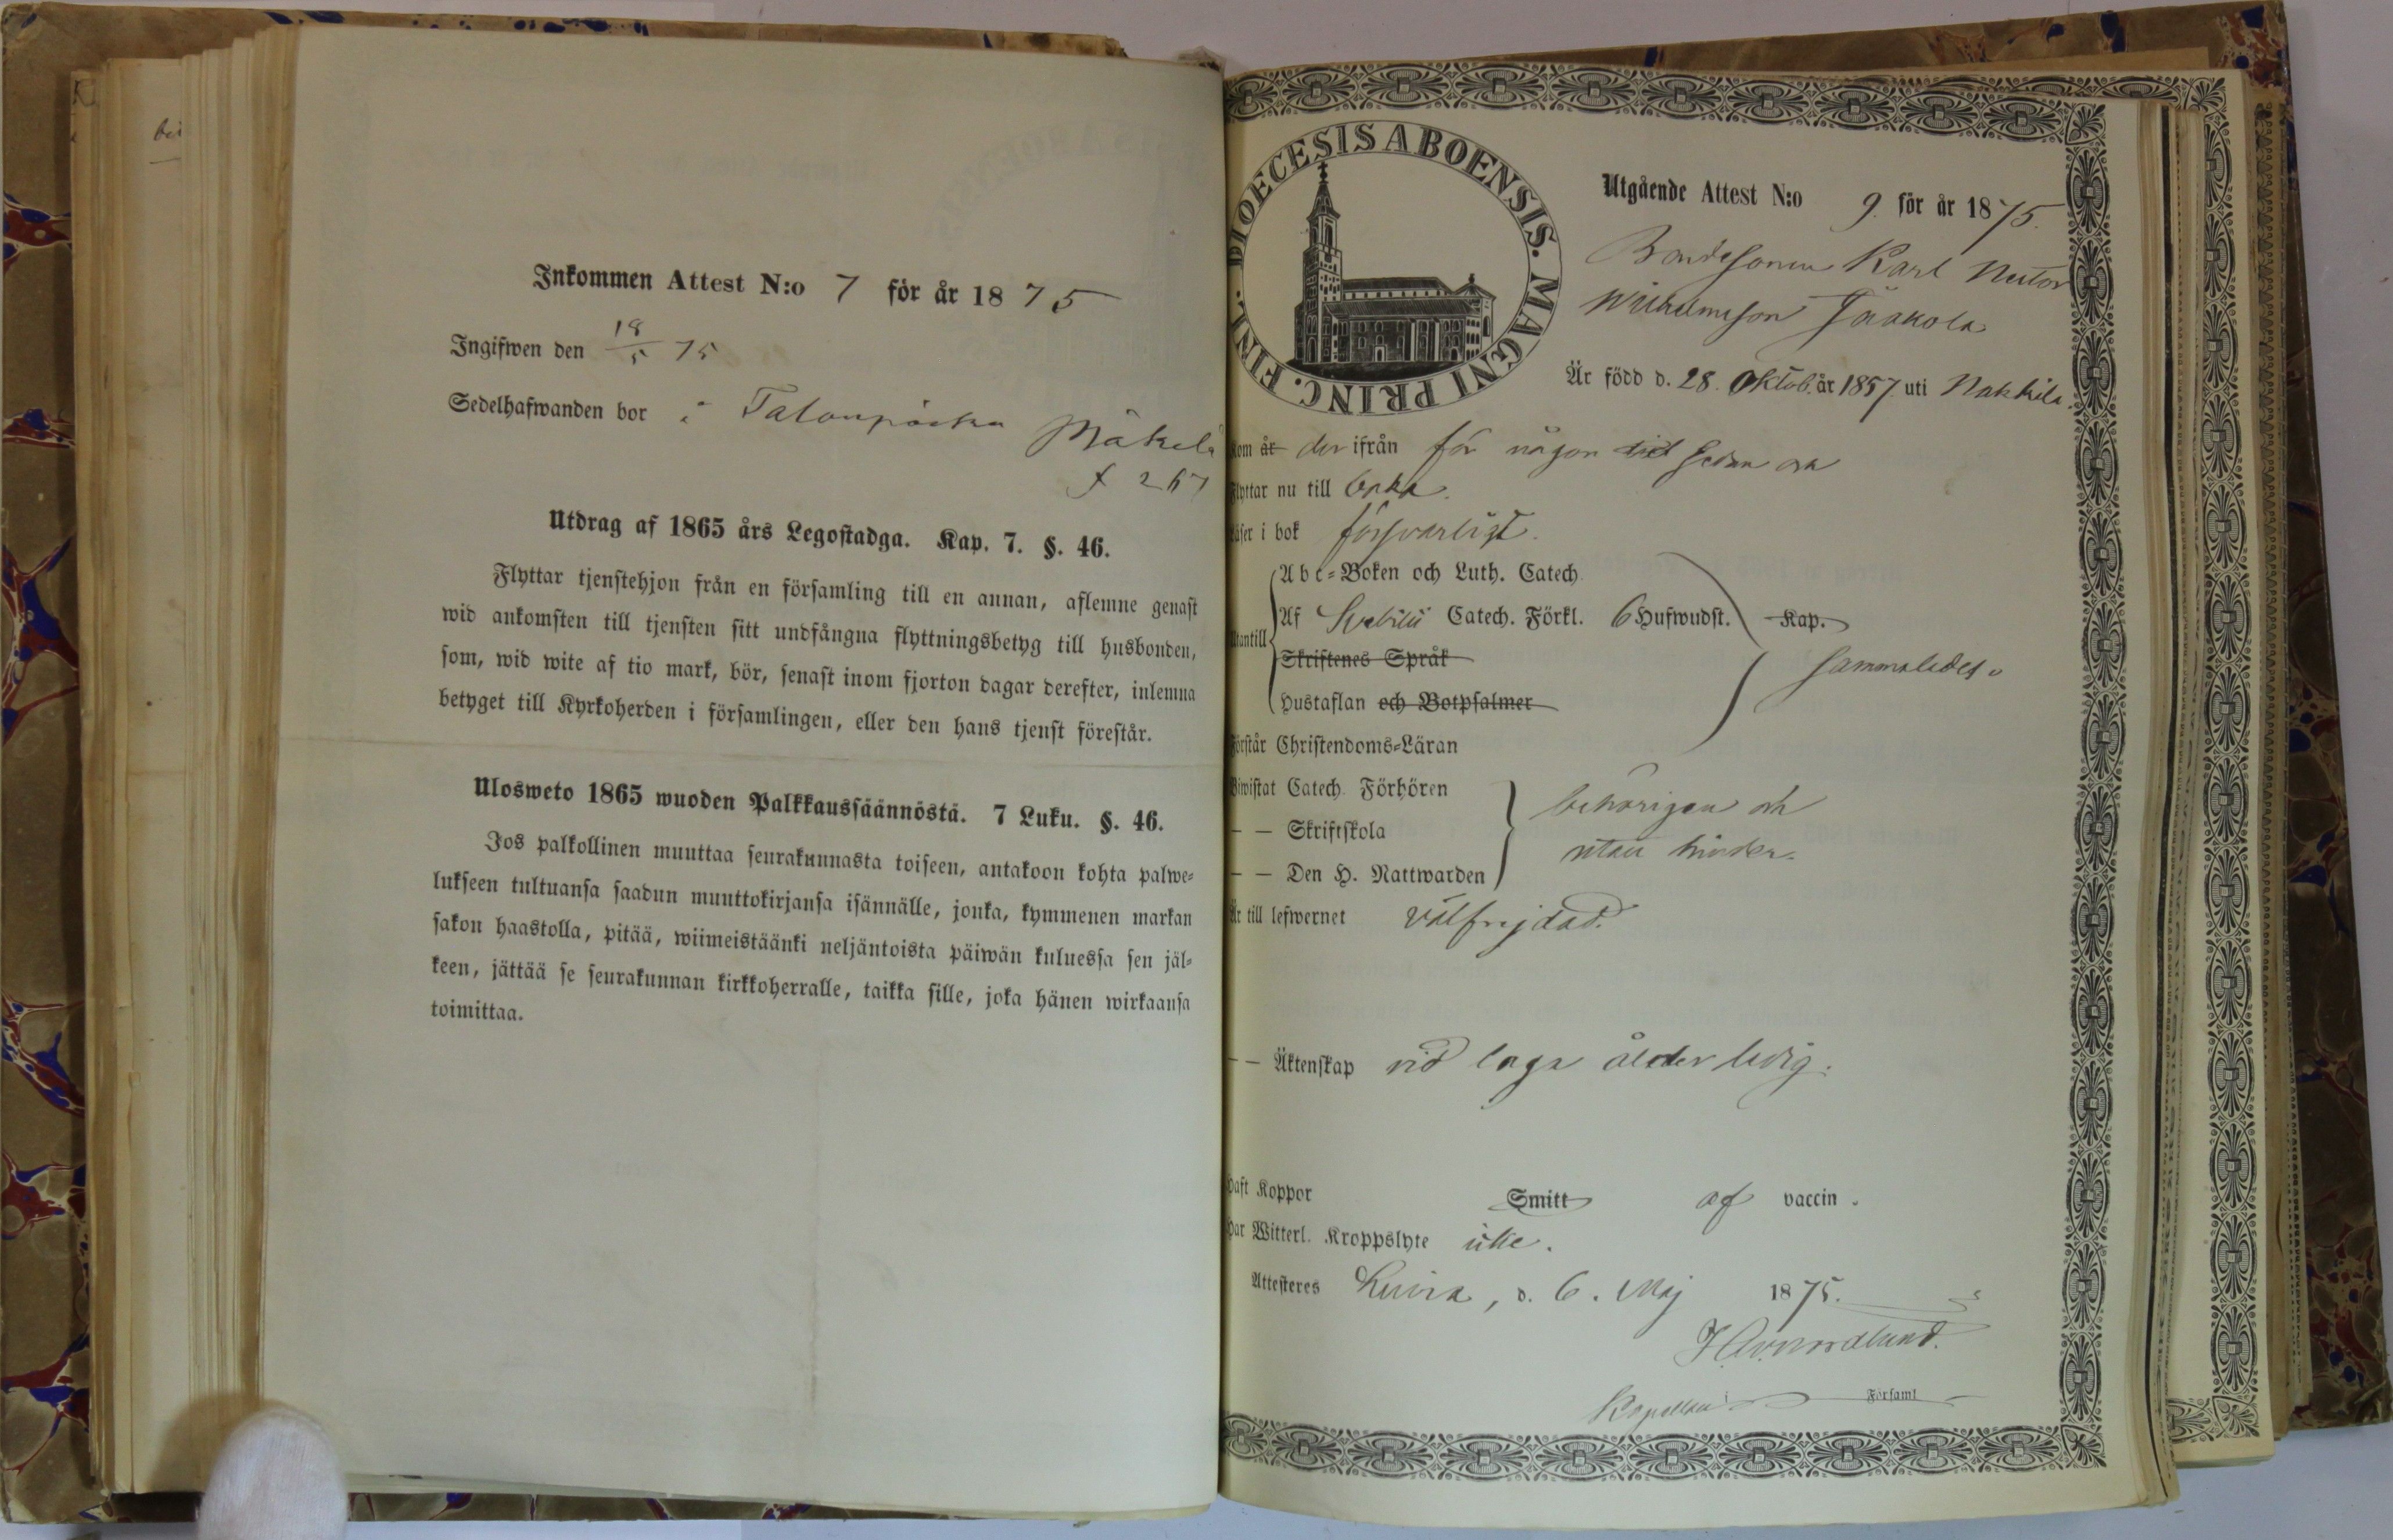 bei
Inkommen Attest N:o 7 för år 1875
Ingifwen den 18/5 75
Sedelhafwanden bor i
Mäkelä
f 267
Utdrag af 1865 års Legostadga. Kap. 7. §. 46.
Flyttar tjenstehjon från en församling till en annan, aflemne genast
wid ankomsten till tjensten sitt undfångna flyttningsbetyg till husbonden,
som, wid wite af tio mark, bör, senast inom fjorton dagar derefter, inlemna
betyget till Kyrkoherden i församlingen, eller den hans tjenst förestår.
Ulosweto 1865 wuoden Palkkaussäännöstä. 7 Luku. §. 46.
Jos palkollinen muuttaa seurakunnasta toiseen, antakoon kohta palwe-
lukseen tultuansa saadun muuttokirjansa isännälle, jonka, kymmenen markan
sakon haastolla, pitää, wiimeistäänki neljäntoista päiwän kuluessa sen jäl-
keen, jättää se seurakunnan kirkkoherralle, taikka sille, joka hänen wirkaansa
toimittaa.
DIOECESIS ABOENSIS. MAGNI PRINC. FINL.
Utgående Attest N:o 9. för år 1875.
Bondesonen Karl
Wilhelmsson Jaakola
Är född d. 28. Oktob. år 1857. uti Nakkila.
Kom år der ifrån för någon tid sedan och
Flyttar nu till
Läser i bok försvarligt.
Abc-Boken och Luth. Catech.
Utantill
Af Svebilii Catech. Förkl. 6 Hufwudst. Kap.
Skriftenes Språk
sammaledes.
Hustaflan och Botpsalmer
Förstår Christendoms-Läran
Biwistat Catech. Förhören
behörigen och
— — Skriftskola
utan hinder.
— — Den H. Nattwarden
Är till lefwernet välfrejdad.
— — Äktenskap vid laga ålder ledig.
Haft Koppor Smitt af vaccin.
Har Witterl. Kroppslyte icke.
Attesteres Luvia, d. 6. Maj 1875.
Kapellan i Församl